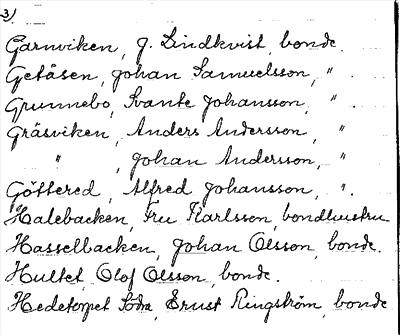 3).
Garnviken, J. Lindkvist, bonde.
Getåsen, Johan Samuelsson, " .
Grunnebo, Svante Johansson, " .
Gräsviken, Anders Andersson, "
" , Johan Andersson, "
Göttered, Alfred Johansson, " .
Halebacken, Fru Karlsson, bondhustru
Hasselbacken, Johan Olsson, bonde.
Hultet, Olof Olsson, bonde.
Hedetorpet Södra, Ernst Ringström, bonde